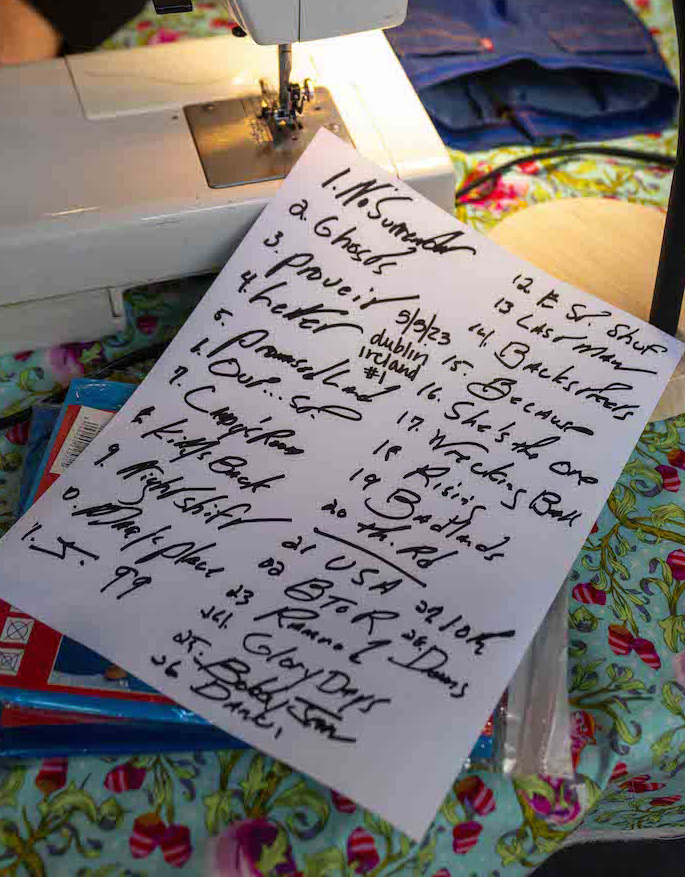 1. No Surrender
2. Ghosts
3. Prove it
4. Letter
5. Promised Land
6. Out... St.
7. Candy's Room
8. Kitty's Back
9. Nightshift
0. Mary's place
1. J. 99
5/5/23
dublin
ireland
#1
12 E St. Shuf
13 Last man
14. Backstreets
15. Because
16. She's the One
17. Wrecking Ball
18 Rising
19 Badlands
20 Th. Rd
21 USA
22 BToR
23 Ramrod
24. Glory Days
25. Bobby Jean
26 Danc,
27 10th
28. Dreams